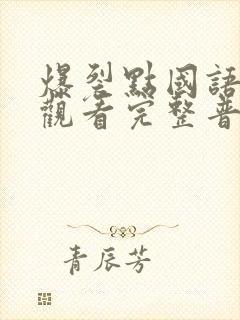 爆裂點國語
觀看完整普
青辰芳